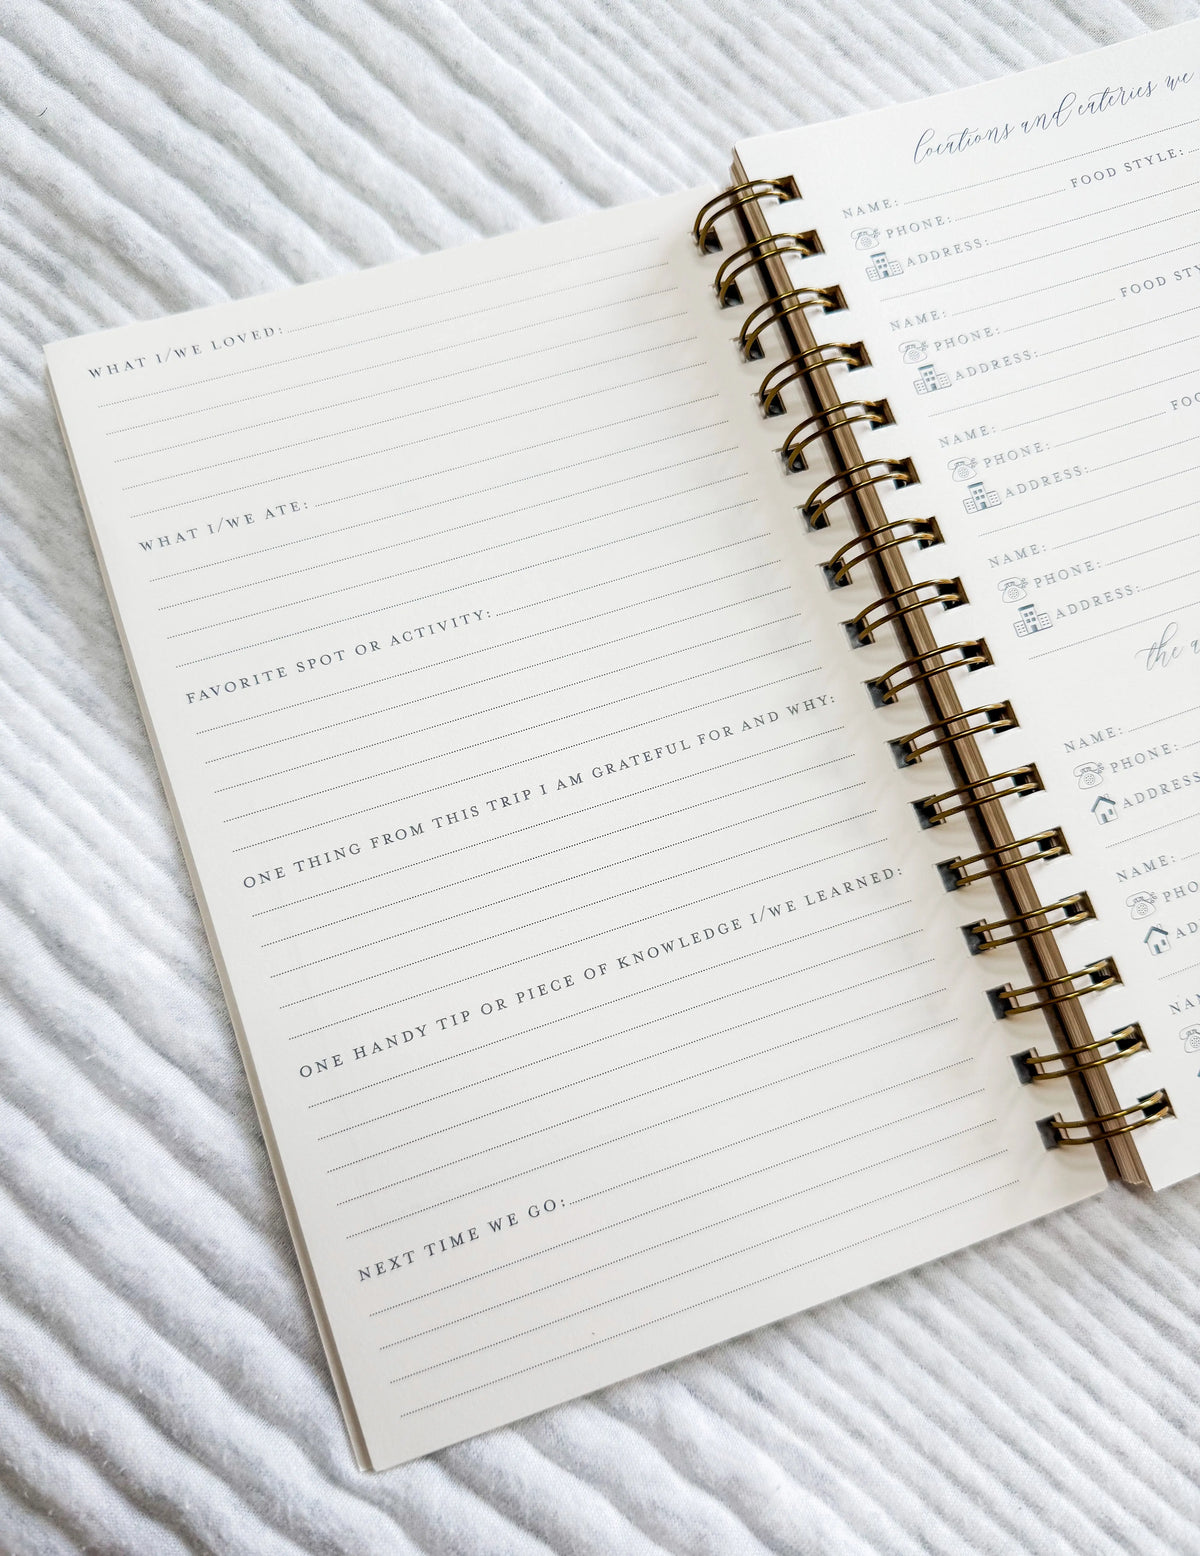 WHAT I/WE LOVED:
WHAT I/WE ATE:
FAVORITE SPOT OR ACTIVITY:
ONE THING FROM THIS TRIP I AM GRATEFUL FOR AND WHY:
ONE HANDY TIP OR PIECE OF KNOWLEDGE I/WE LEARNED:
NEXT TIME WE GO:
locations and eateries we
NAME: FOOD STYLE:
PHONE:
ADDRESS:
NAME: FOOD STY
PHONE:
ADDRESS:
NAME: FOO
PHONE:
ADDRESS:
NAME:
PHONE:
ADDRESS:
the a
NAME:
PHONE:
ADDRESS
NAME:
PHO
AD
NA